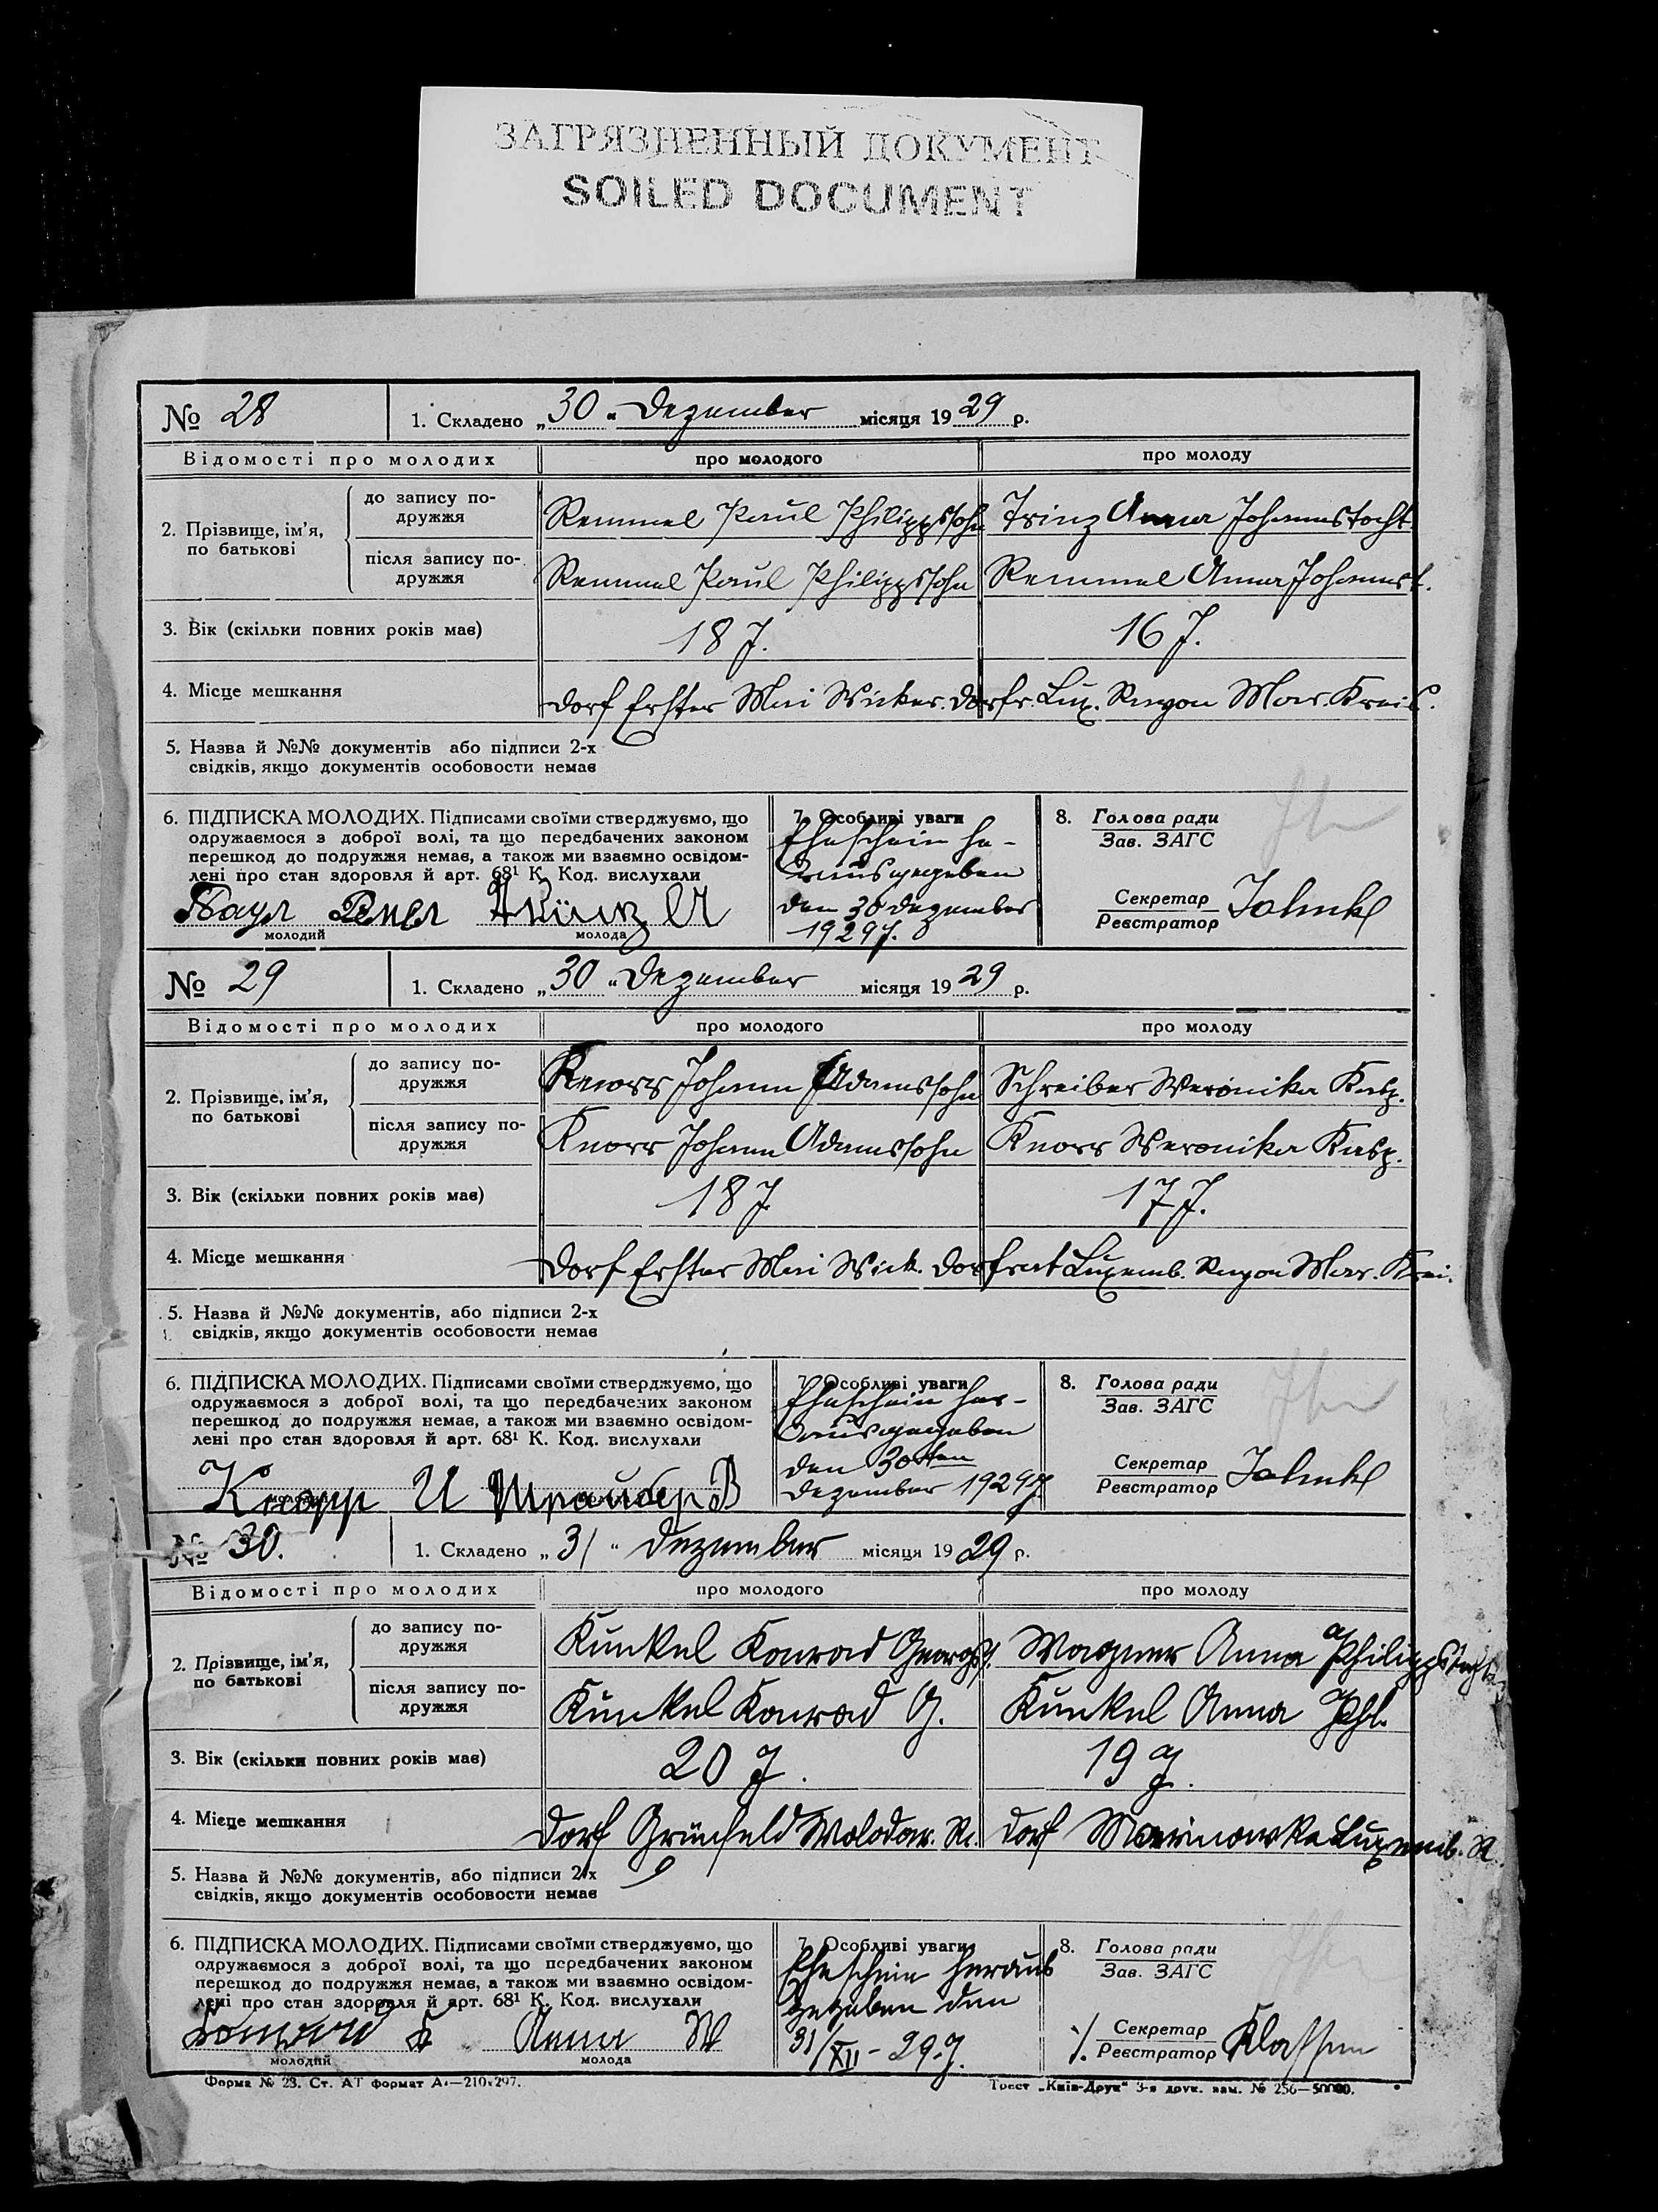 ЗАГРЯЗНЕННЫЙ ДОКУМЕНТ
SOILED DOCUMENT
№ 28 1. Складено „30“ Dezember місяця 1929 р.
Відомості про молодих про молодого про молоду
2. Прізвище, ім'я, по батькові
до запису подружжя Remmel Paul Philippssohn Trinz Anna Johannstocht.
після запису подружжя Remmel Paul Philippssohn Remmel Anna Johannst.
3. Вік (скільки повних років має) 18 J. 16 J.
4. Місце мешкання Dorf Erster Mai Wicker. Dorfr. Lux. Rayon Mar. Kreis.
5. Назва й №№ документів або підписи 2-х
свідків, якщо документів особовости немає
6. ПІДПИСКА МОЛОДИХ. Підписами своїми стверджуємо, що
одружаємося з доброї волі, та що передбачених законом
перешкод до подружжя немає, а також ми взаємно освідом-
лені про стан здоровля й арт. 68¹ К. Код. вислухали
Паул Ремел
молодий молода
7. Особливі уваги
Eheschein he-
rausgegeben
den 30 Dezember
1929 J.
8. Голова ради
Зав. ЗАГС
Секретар
Реєстратор
№ 29 1. Складено „30“ Dezember місяця 1929 р.
Відомості про молодих про молодого про молоду
2. Прізвище, ім'я, по батькові
до запису подружжя Knorr Johann Adamssohn Schreiber Weronika Kasp.
після запису подружжя Knorr Johann Adamssohn Knorr Weronika Kasp.
3. Вік (скільки повних років має) 18 J 17 J.
4. Місце мешкання Dorf Erster Mai Wick. Dorfrat Luxemb. Rayon Mar. Krei.
5. Назва й №№ документів, або підписи 2-х
свідків, якщо документів особовости немає
6. ПІДПИСКА МОЛОДИХ. Підписами своїми стверджуємо, що
одружаємося з доброї волі, та що передбачених законом
перешкод до подружжя немає, а також ми взаємно освідом-
лені про стан здоровля й арт. 68¹ К. Код. вислухали
Кнорр И Шрайбер В
7. Особливі уваги
Eheschein her-
ausgegeben
den 30ten
Dezember 1929 J.
8. Голова ради
Зав. ЗАГС
Секретар
Реєстратор
№ 30. 1. Складено „31“ Dezember місяця 1929 р.
Відомості про молодих про молодого про молоду
2. Прізвище, ім'я, по батькові
до запису подружжя Kunkel Konrad Georgs. Wagner Anna Philippstochter
після запису подружжя Kunkel Konrad G. Kunkel Anna Phl.
3. Вік (скільки повних років має) 20 J. 19 J.
4. Місце мешкання Dorf Grünfeld Wolodar. R. Dorf Marinowka Luxemb. R.
5. Назва й №№ документів, або підписи 2-х
свідків, якщо документів особовости немає
6. ПІДПИСКА МОЛОДИХ. Підписами своїми стверджуємо, що
одружаємося з доброї волі, та що передбачених законом
перешкод до подружжя немає, а також ми взаємно освідом-
лені про стан здоровля й арт. 68¹ К. Код. вислухали
Konrad K Anna W
молодий молода
7. Особливі уваги
Eheschein heraus
gegeben den
31/XII-29 J.
8. Голова ради
Зав. ЗАГС
Секретар
Реєстратор Klassen
Форма № 23. Ст. АТ формат А₄—210×297. Трест „Київ-Друк“ 3-я друк. зам. № 256—50000.